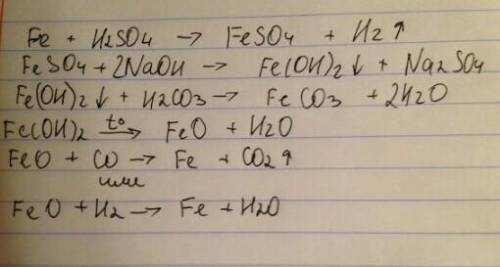 Fe + H2SO4 → FeSO4 + H2↑
FeSO4 + 2NaOH → Fe(OH)2↓ + Na2SO4
Fe(OH)2↓ + H2CO3 → FeCO3 + 2H2O
Fe(OH)2 t° → FeO + H2O
FeO + CO → Fe + CO2↑
или
FeO + H2 → Fe + H2O